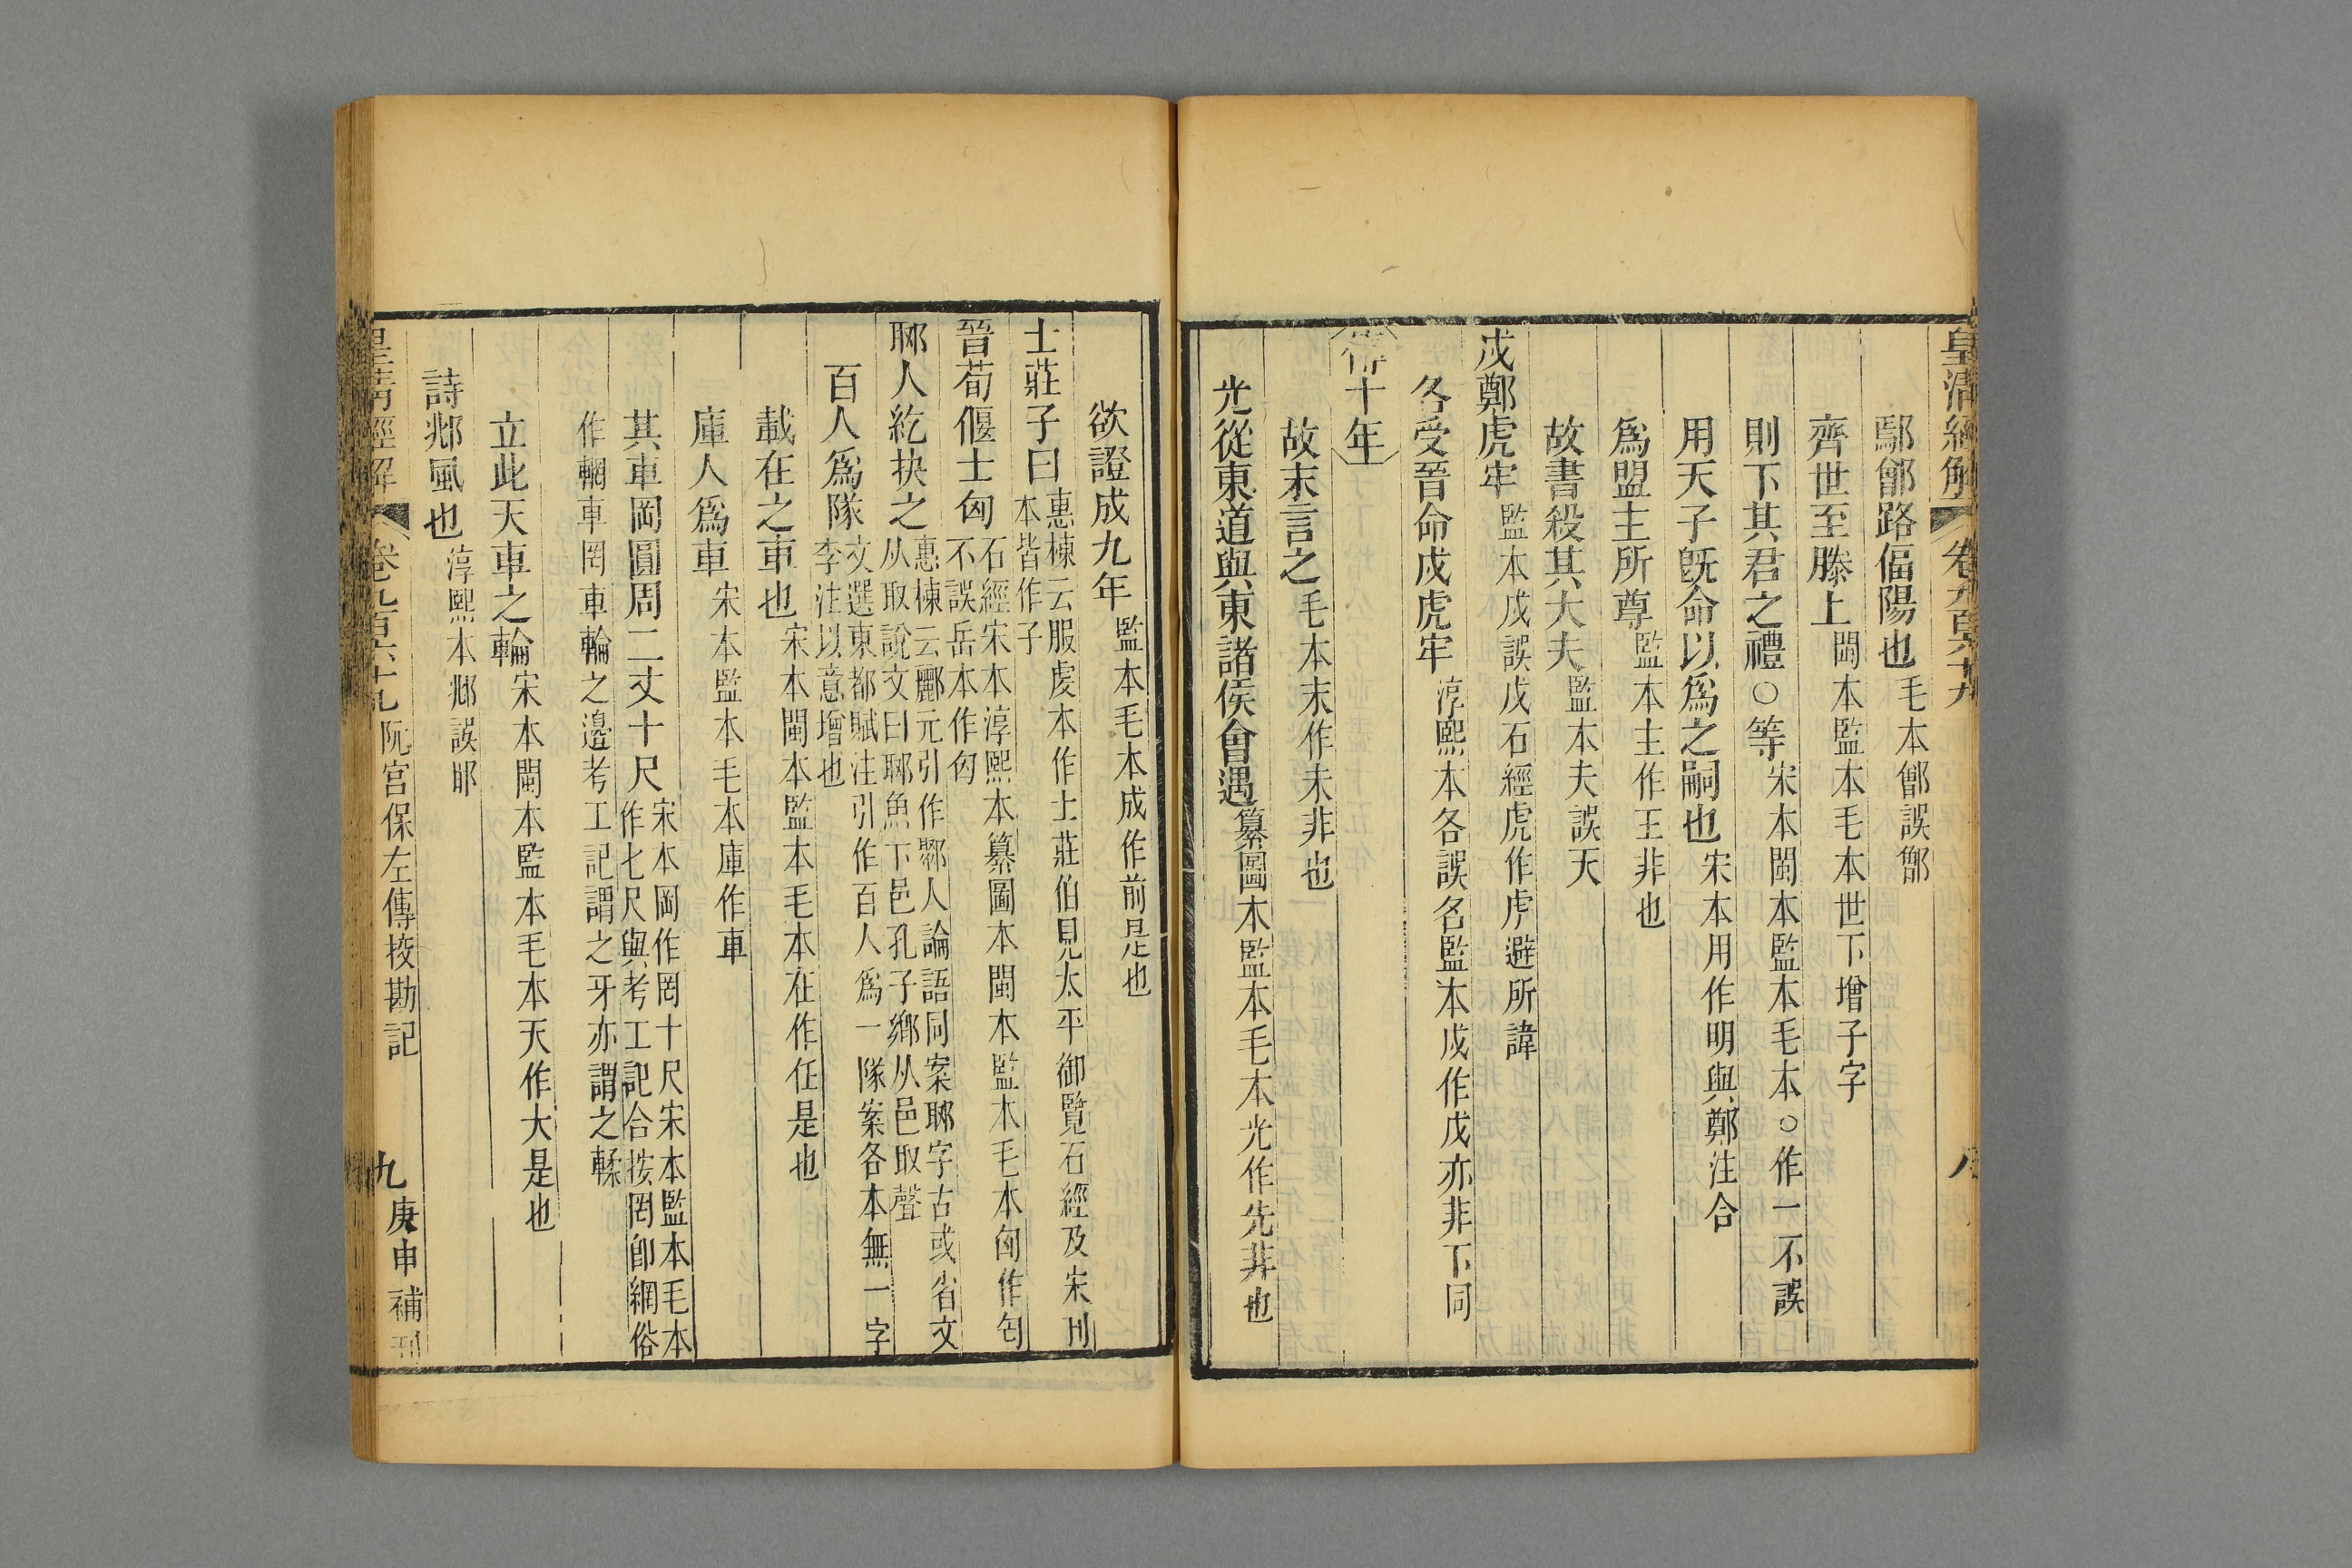 皇清經解 卷九百六十九 八
鄢鄫路偪陽也毛本鄫誤鄶
齊世至滕上閩本監本毛本世下增子字
則下其君之禮○等宋本閩本監本毛本○作一不誤
用天子旣命以爲之嗣也宋本用作明與鄭注合
爲盟主所尊監本主作王非也
故書殺其大夫監本夫誤天
戍鄭虎牢監本戍誤戊石經虎作虍避所諱
各受晉命戍虎牢淳熙本各誤名監本戍作戊亦非下同
傳十年
故末言之毛本末作未非也
光從東道與東諸侯會遇纂圖本監本毛本光作先非也
欲證成九年監本毛本成作前是也
士莊子曰惠棟云服虔本作士莊伯見太平御覽石經及宋刊本皆作子
晉荀偃士匄石經宋本淳熙本纂圖本閩本監本毛本匃作匄不誤岳本作匃
郰人紇抉之惠棟云酈元引作鄹人論語同案郰字古或省文从取說文曰郰魚下邑孔子鄉从邑取聲
百人爲隊文選東都賦注引作百人爲一隊案各本無一字李注以意增也
載在之車也宋本閩本監本毛本在作任是也
庫人爲車宋本監本毛本庫作車
其車岡圓周二丈十尺宋本岡作罔十尺宋本監本毛本作七尺與考工記合按罔卽網俗
作輞車罔車輪之邊考工記謂之牙亦謂之輮
立此天車之輪宋本閩本監本毛本天作大是也
詩邶風也淳熙本邶誤耶
皇淸經解 卷九百六十九 阮宮保左傳挍勘記 九 庚申補刊